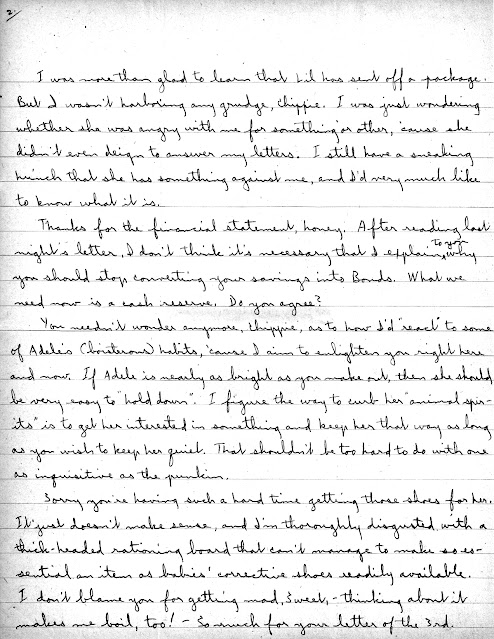 2.
I was more than glad to learn that Lil has sent off a package.
But I wasn't harboring any grudge, Chippie. I was just wondering
whether she was angry with me for something or other, 'cause she
didn't even deign to answer my letters. I still have a sneaking
hunch that she has something against me, and I'd very much like
to know what it is.
Thanks for the financial statement, honey. After reading last
night's letter, I don't think it's necessary that I explain to you why
you should stop converting your savings into Bonds. What we
need now is a cash reserve. Do you agree?
You needn't wonder anymore, Chippie, as to how I'd "react" to some
of Adele's (boisterous) habits, 'cause I aim to enlighten you right here
and now. If Adele is nearly as bright as you make out, then she should
be very easy to "hold down". I figure the way to curb her "animal spir-
its" is to get her interested in something and keep her that way as long
as you wish to keep her quiet. That shouldn't be too hard to do with one
as inquisitive as the punkin.
Sorry you're having such a hard time getting those shoes for her.
It just doesn't make sense, and I'm thoroughly disgusted with a
thick-headed rationing board that can't manage to make so es-
sential an item as babies' corrective shoes readily available.
I don't blame you for getting mad, Sweet, - thinking about it
makes me boil, too! - So much for your letter of the 3rd.